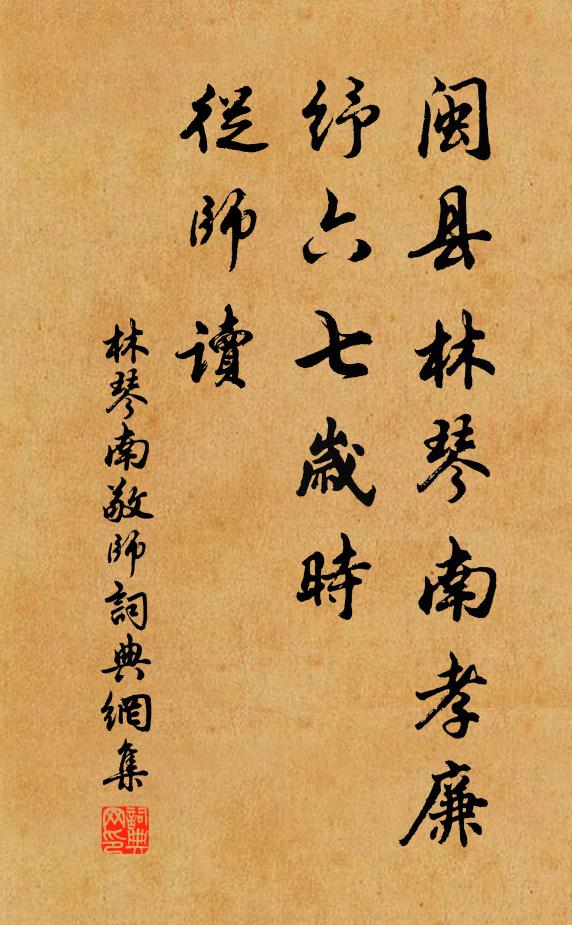 闽县林琴南孝廉
纾六七歳時
從師讀
林琴南敬師詞典網集
詞典
网印